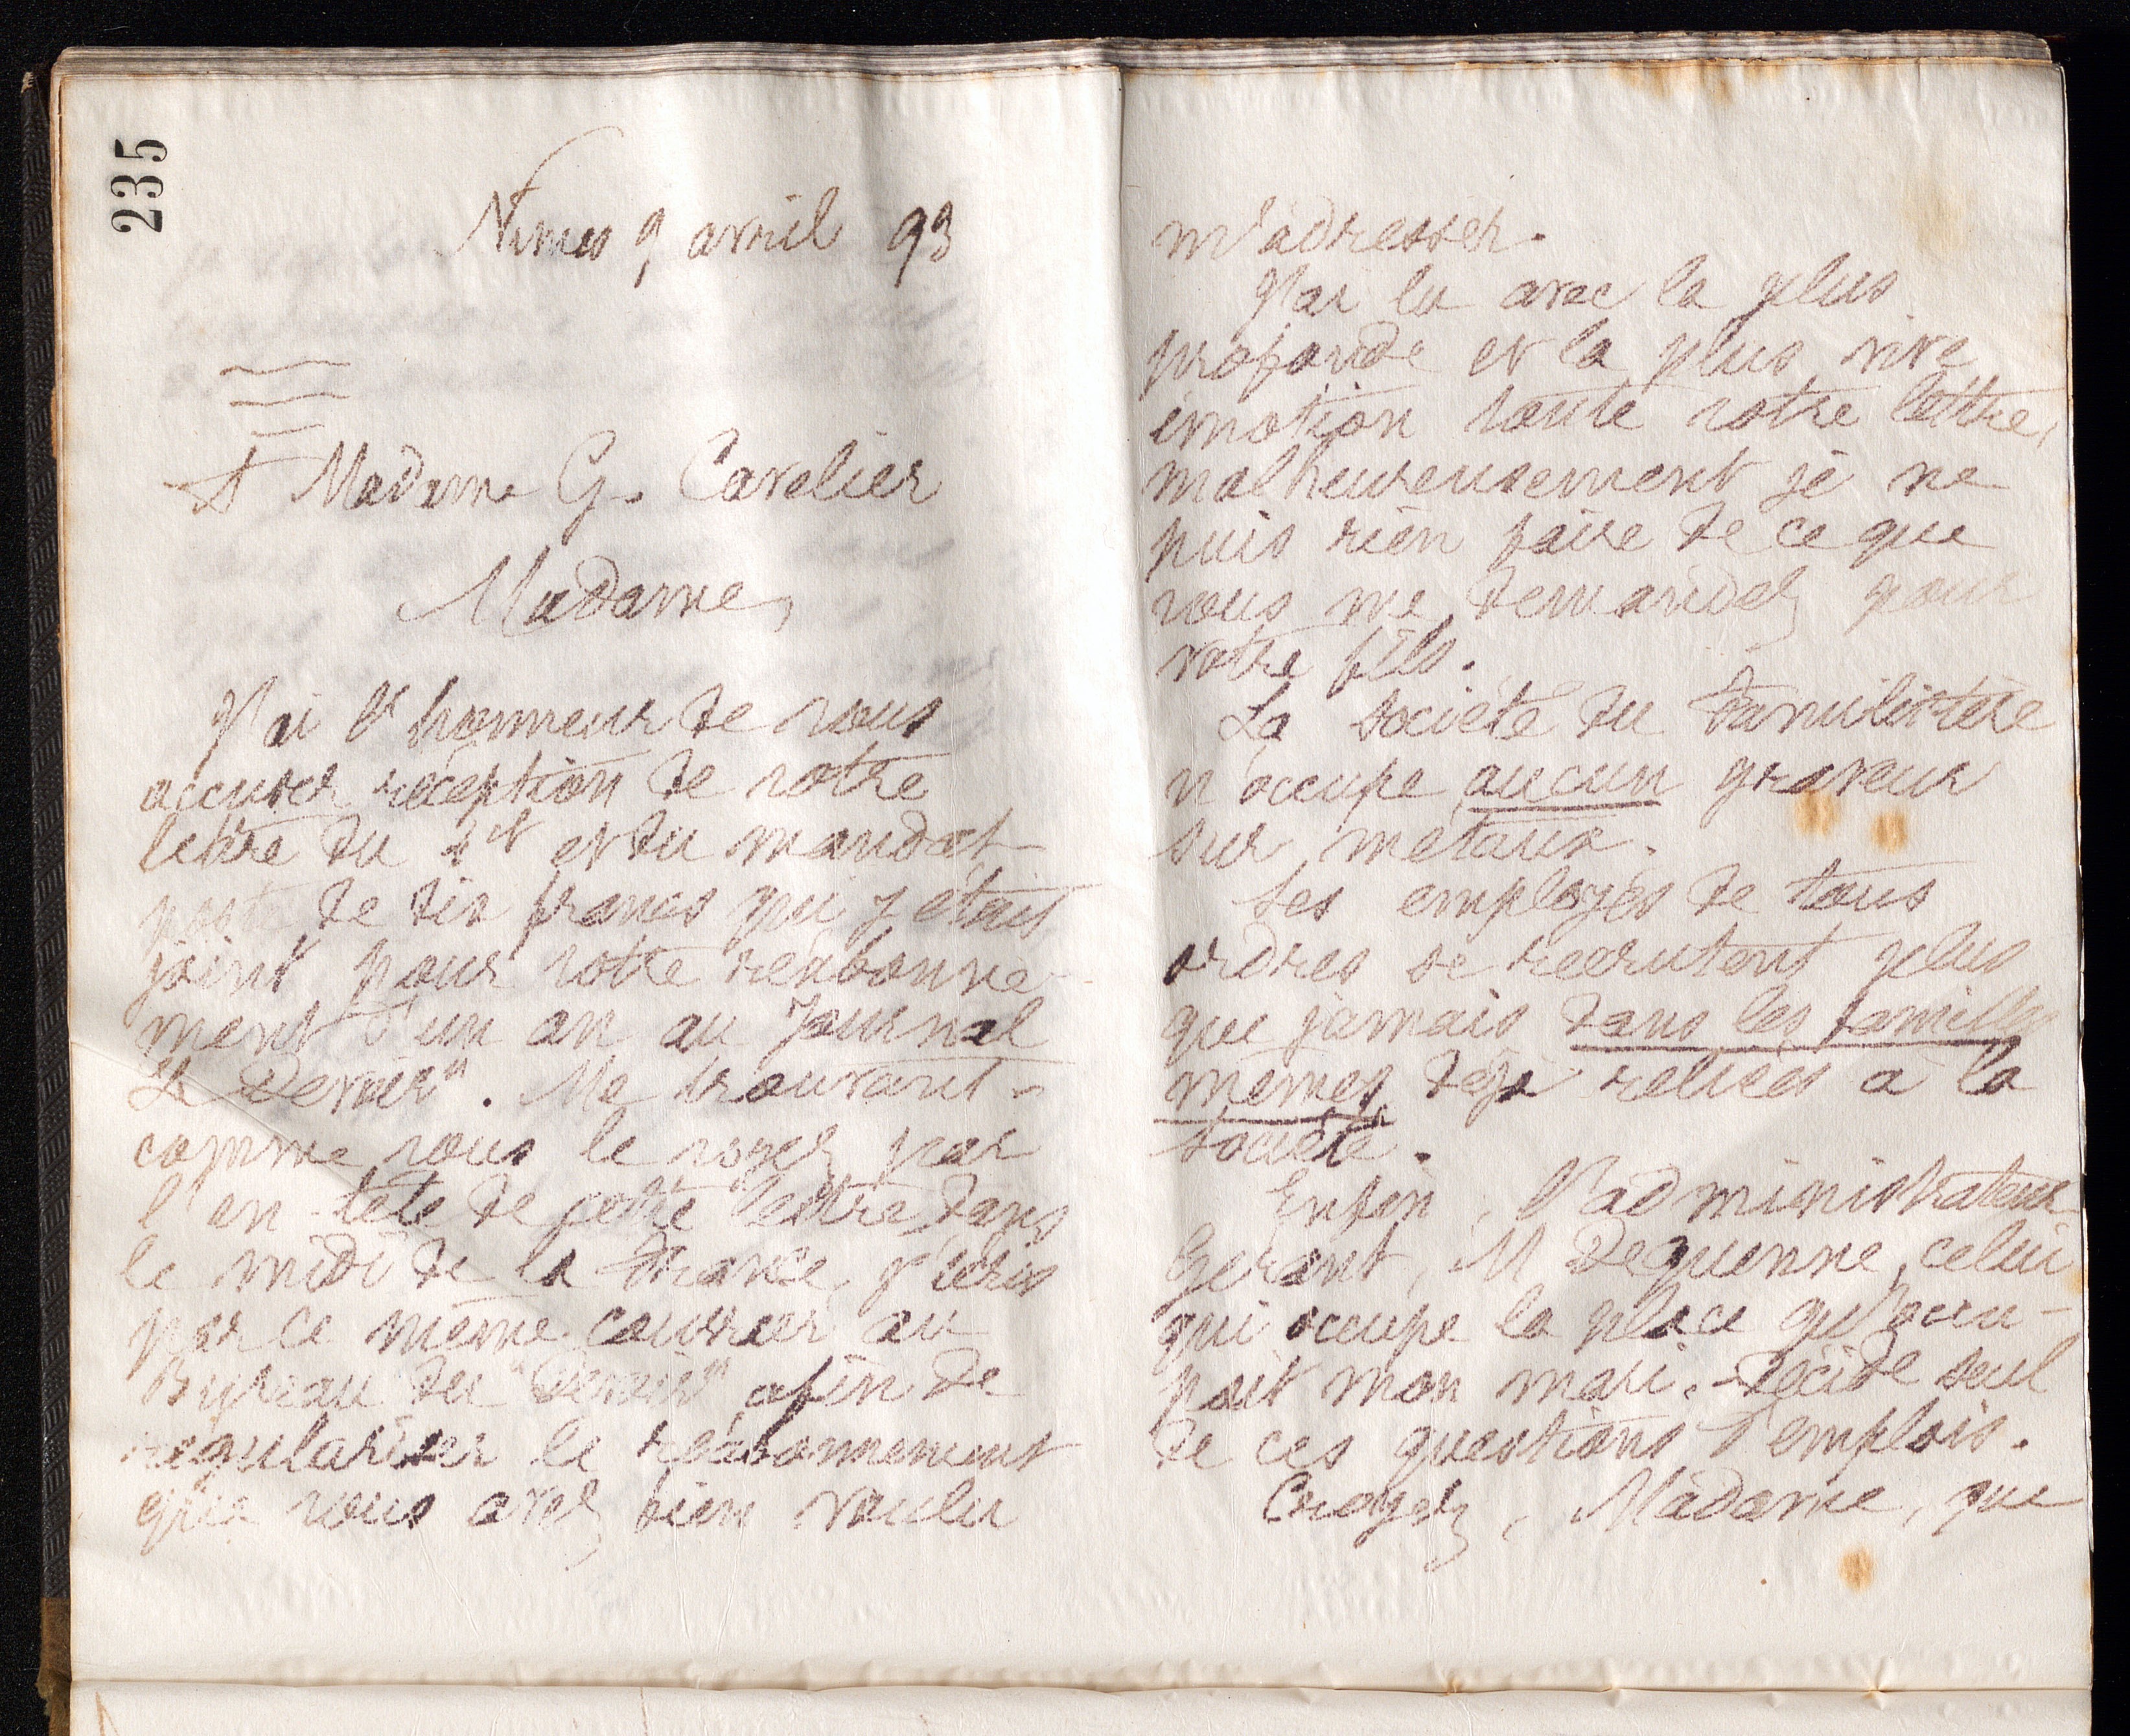 235
Nimes 9 avril 93
A Madame G. Cavelier
Madame,
J'ai l'honneur de vous
accuser réception de votre
lettre du 1er et du mandat-
poste de dix francs qui y était
joint pour votre réabonne-
ment d'un an au journal
Le Devoir". Me trouvant-
comme vous le voyez par
l'en-tête de cette lettre dans
le midi de la France, j'écris
par ce même courrier au
Bureau du "Devoir" afin de
régulariser le réabonnement
que vous avez bien voulu
m'adresser.
J'ai lu avec la plus
profonde et la plus vive
émotion toute votre lettre,
malheureusement je ne
puis rien faire de ce que
vous me demandez pour
votre fils.
La société du Familistère
n'occupe aucun graveur
sur métaux.
Les employés de tous
ordres se recrutent plus
que jamais dans les familles
mêmes déjà reliées à la
société.
Enfin, l'administrateur
Gérant, M Dequenne, celui
qui occupe la place qu'occu-
pait mon mari, décide seul
de ces questions d'emplois.
Croyez, Madame, que